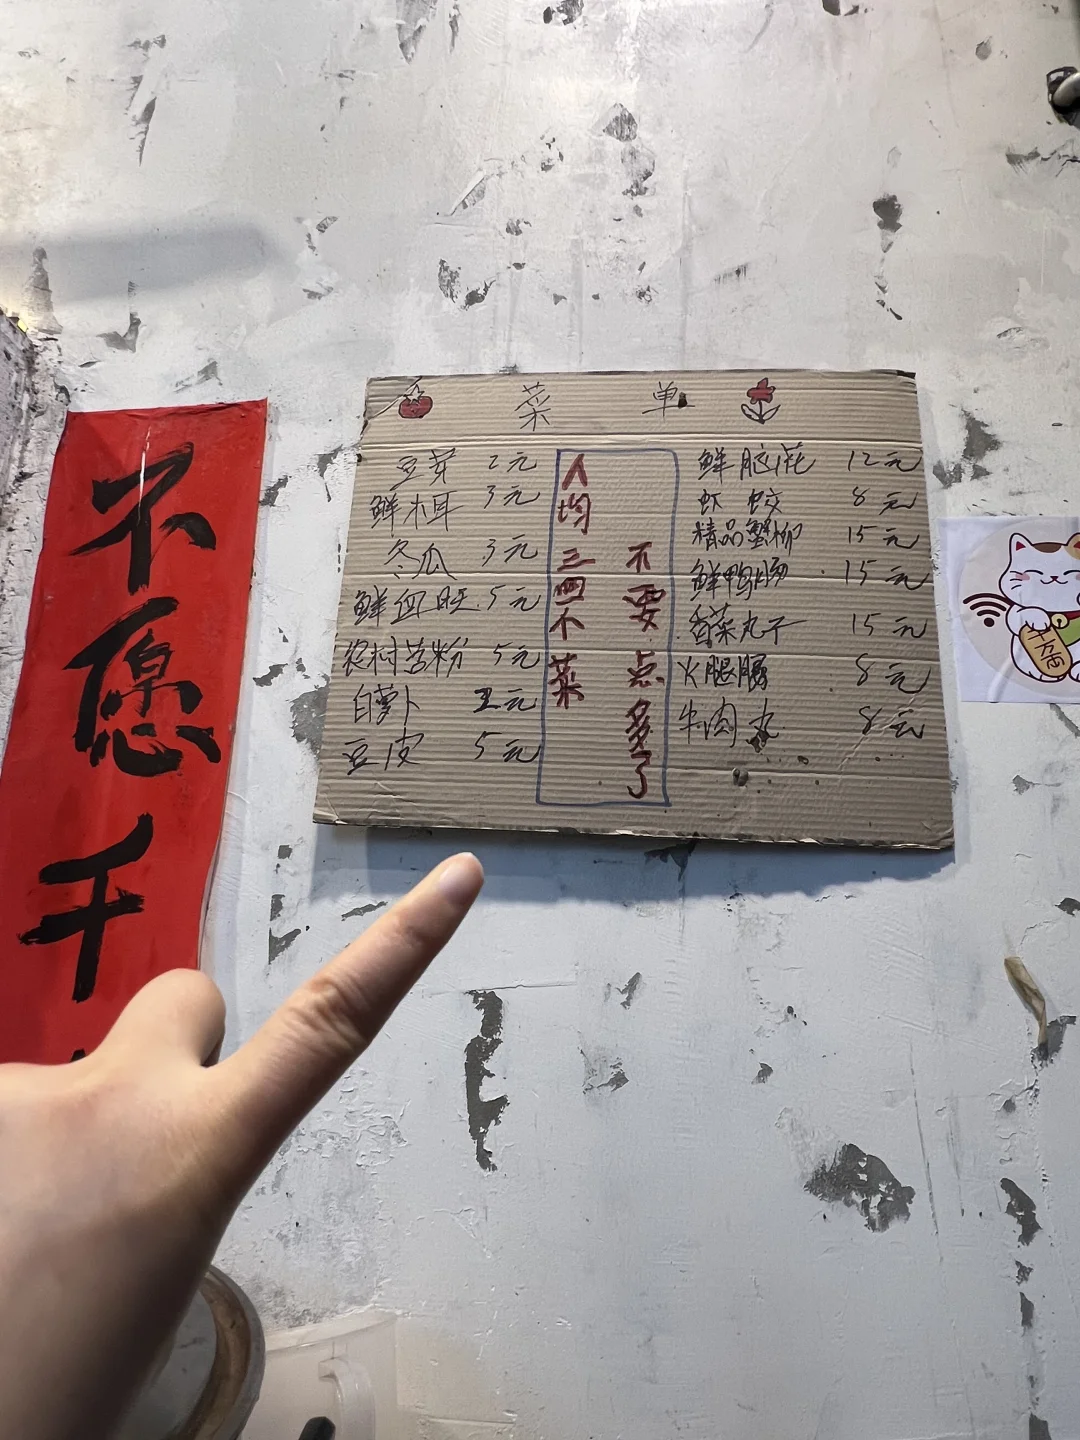 不愿千
菜单
豆芽 2元
鲜木耳 3元
冬瓜 3元
鲜血旺 5元
农村苕粉 5元
白萝卜 五元
豆皮 5元
人均三四个菜
不要点多了
鲜脑花 12元
虾饺 8元
精品蟹柳 15元
鲜鸭肠 15元
香菜丸子 15元
火腿肠 8元
牛肉丸 8元
千万両